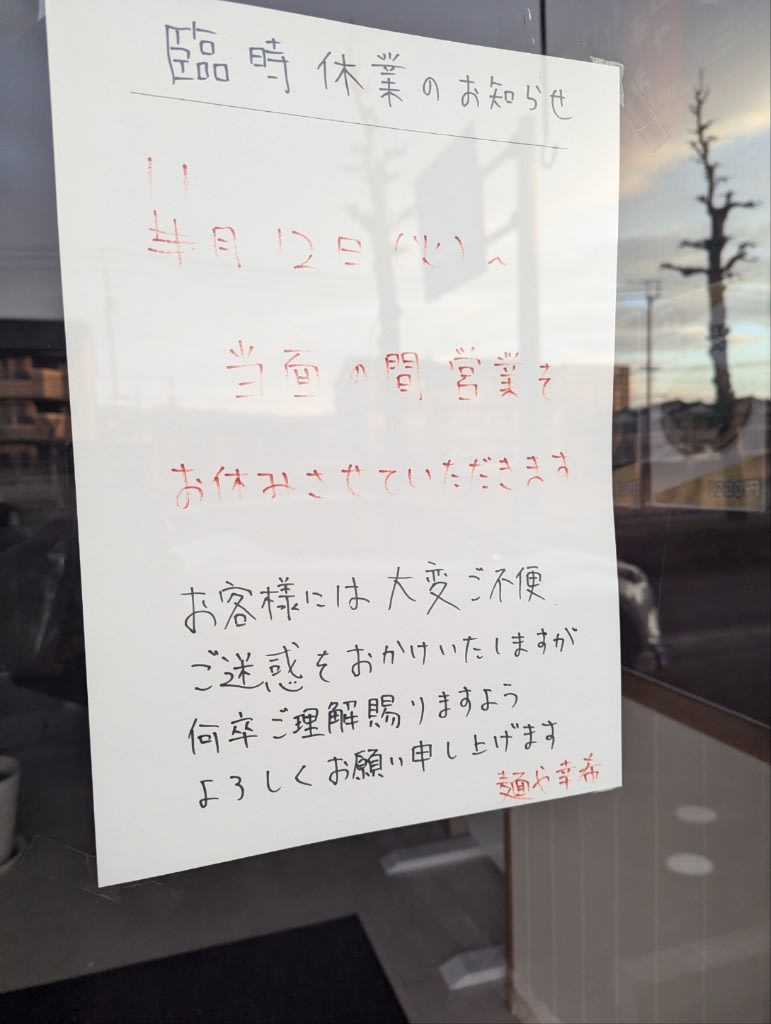 臨時休業のお知らせ
11
月12日(火)~
当面の間営業を
お休みさせていただきます
お客様には大変ご不便
ご迷惑をおかけいたしますが
何卒ご理解賜りますよう
よろしくお願い申し上げます
麺や幸希